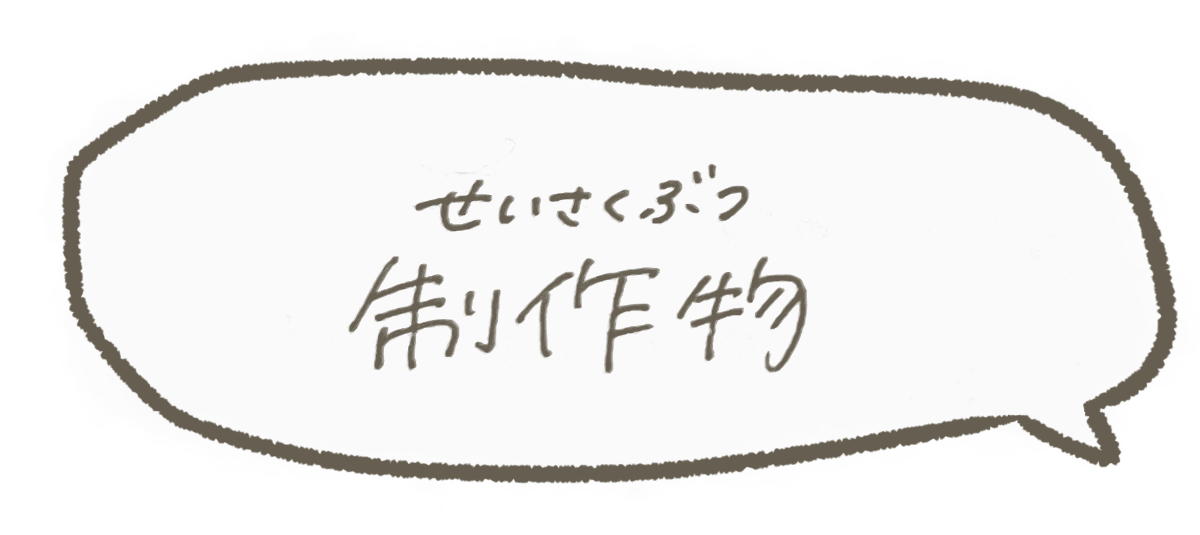 せいさくぶつ
制作物